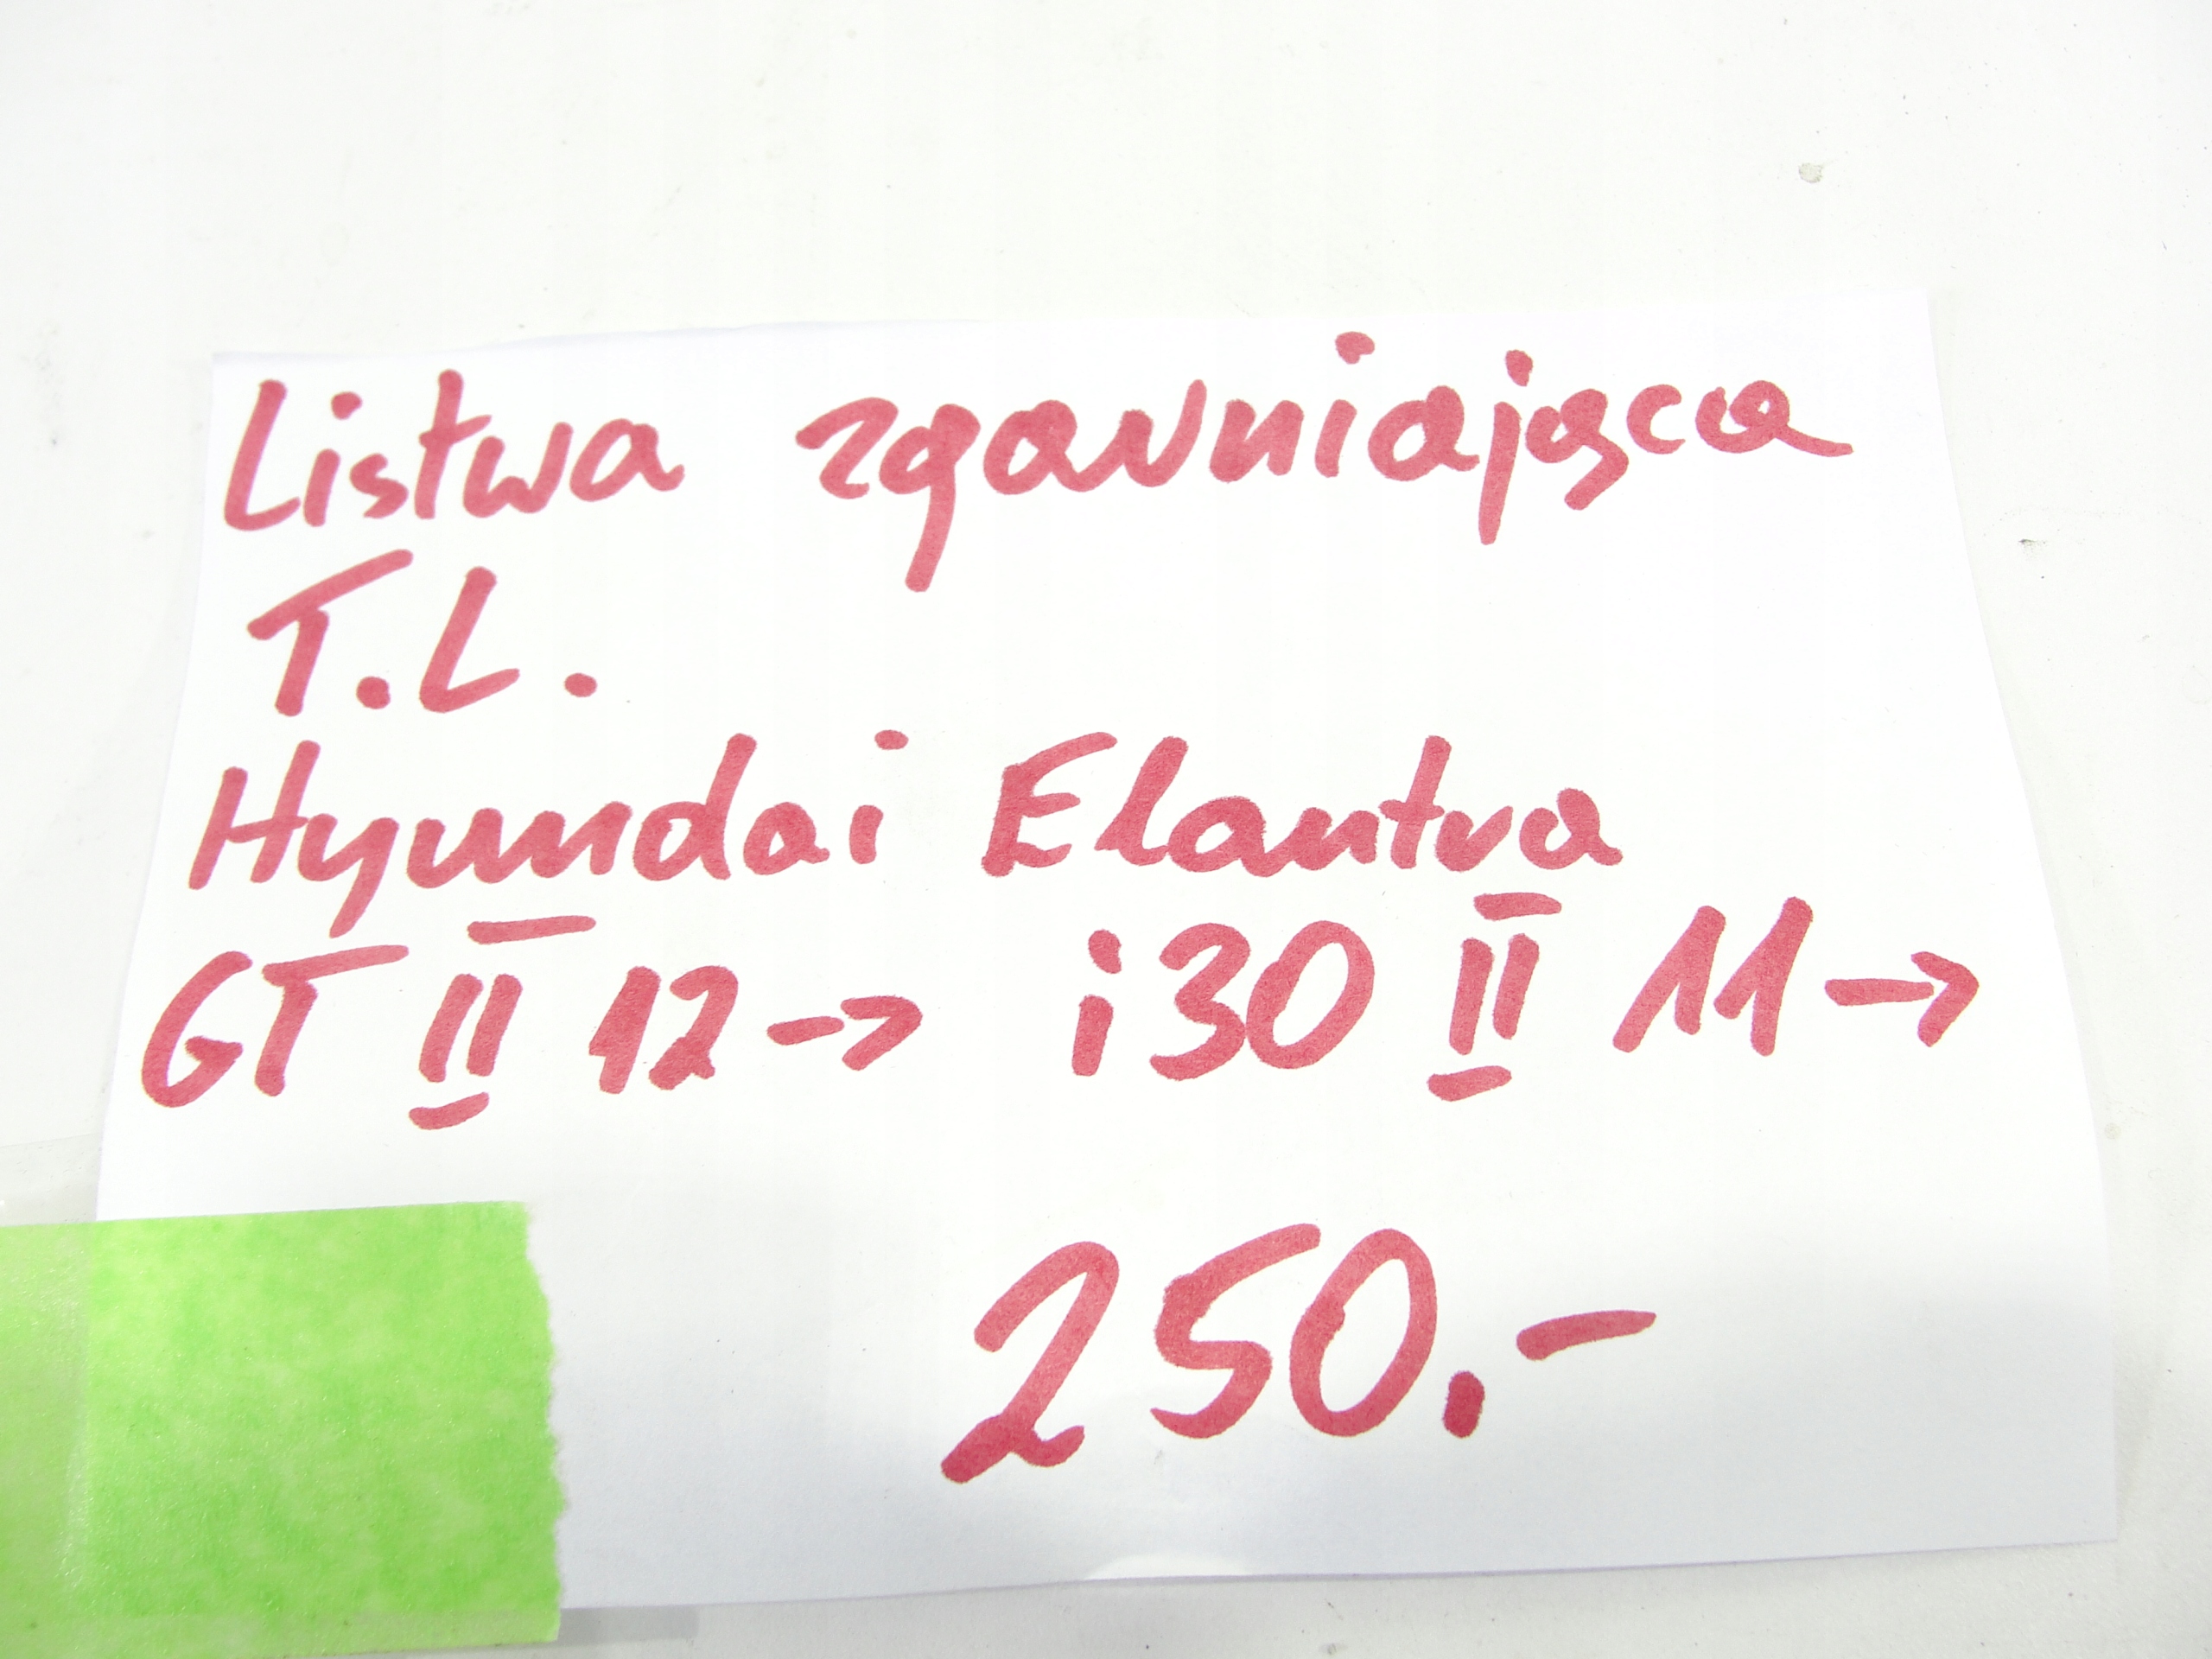 Listwa zgarniająca
T.L.
Hyundai Elantra
GT II 12-> i30 II 11->
250.-